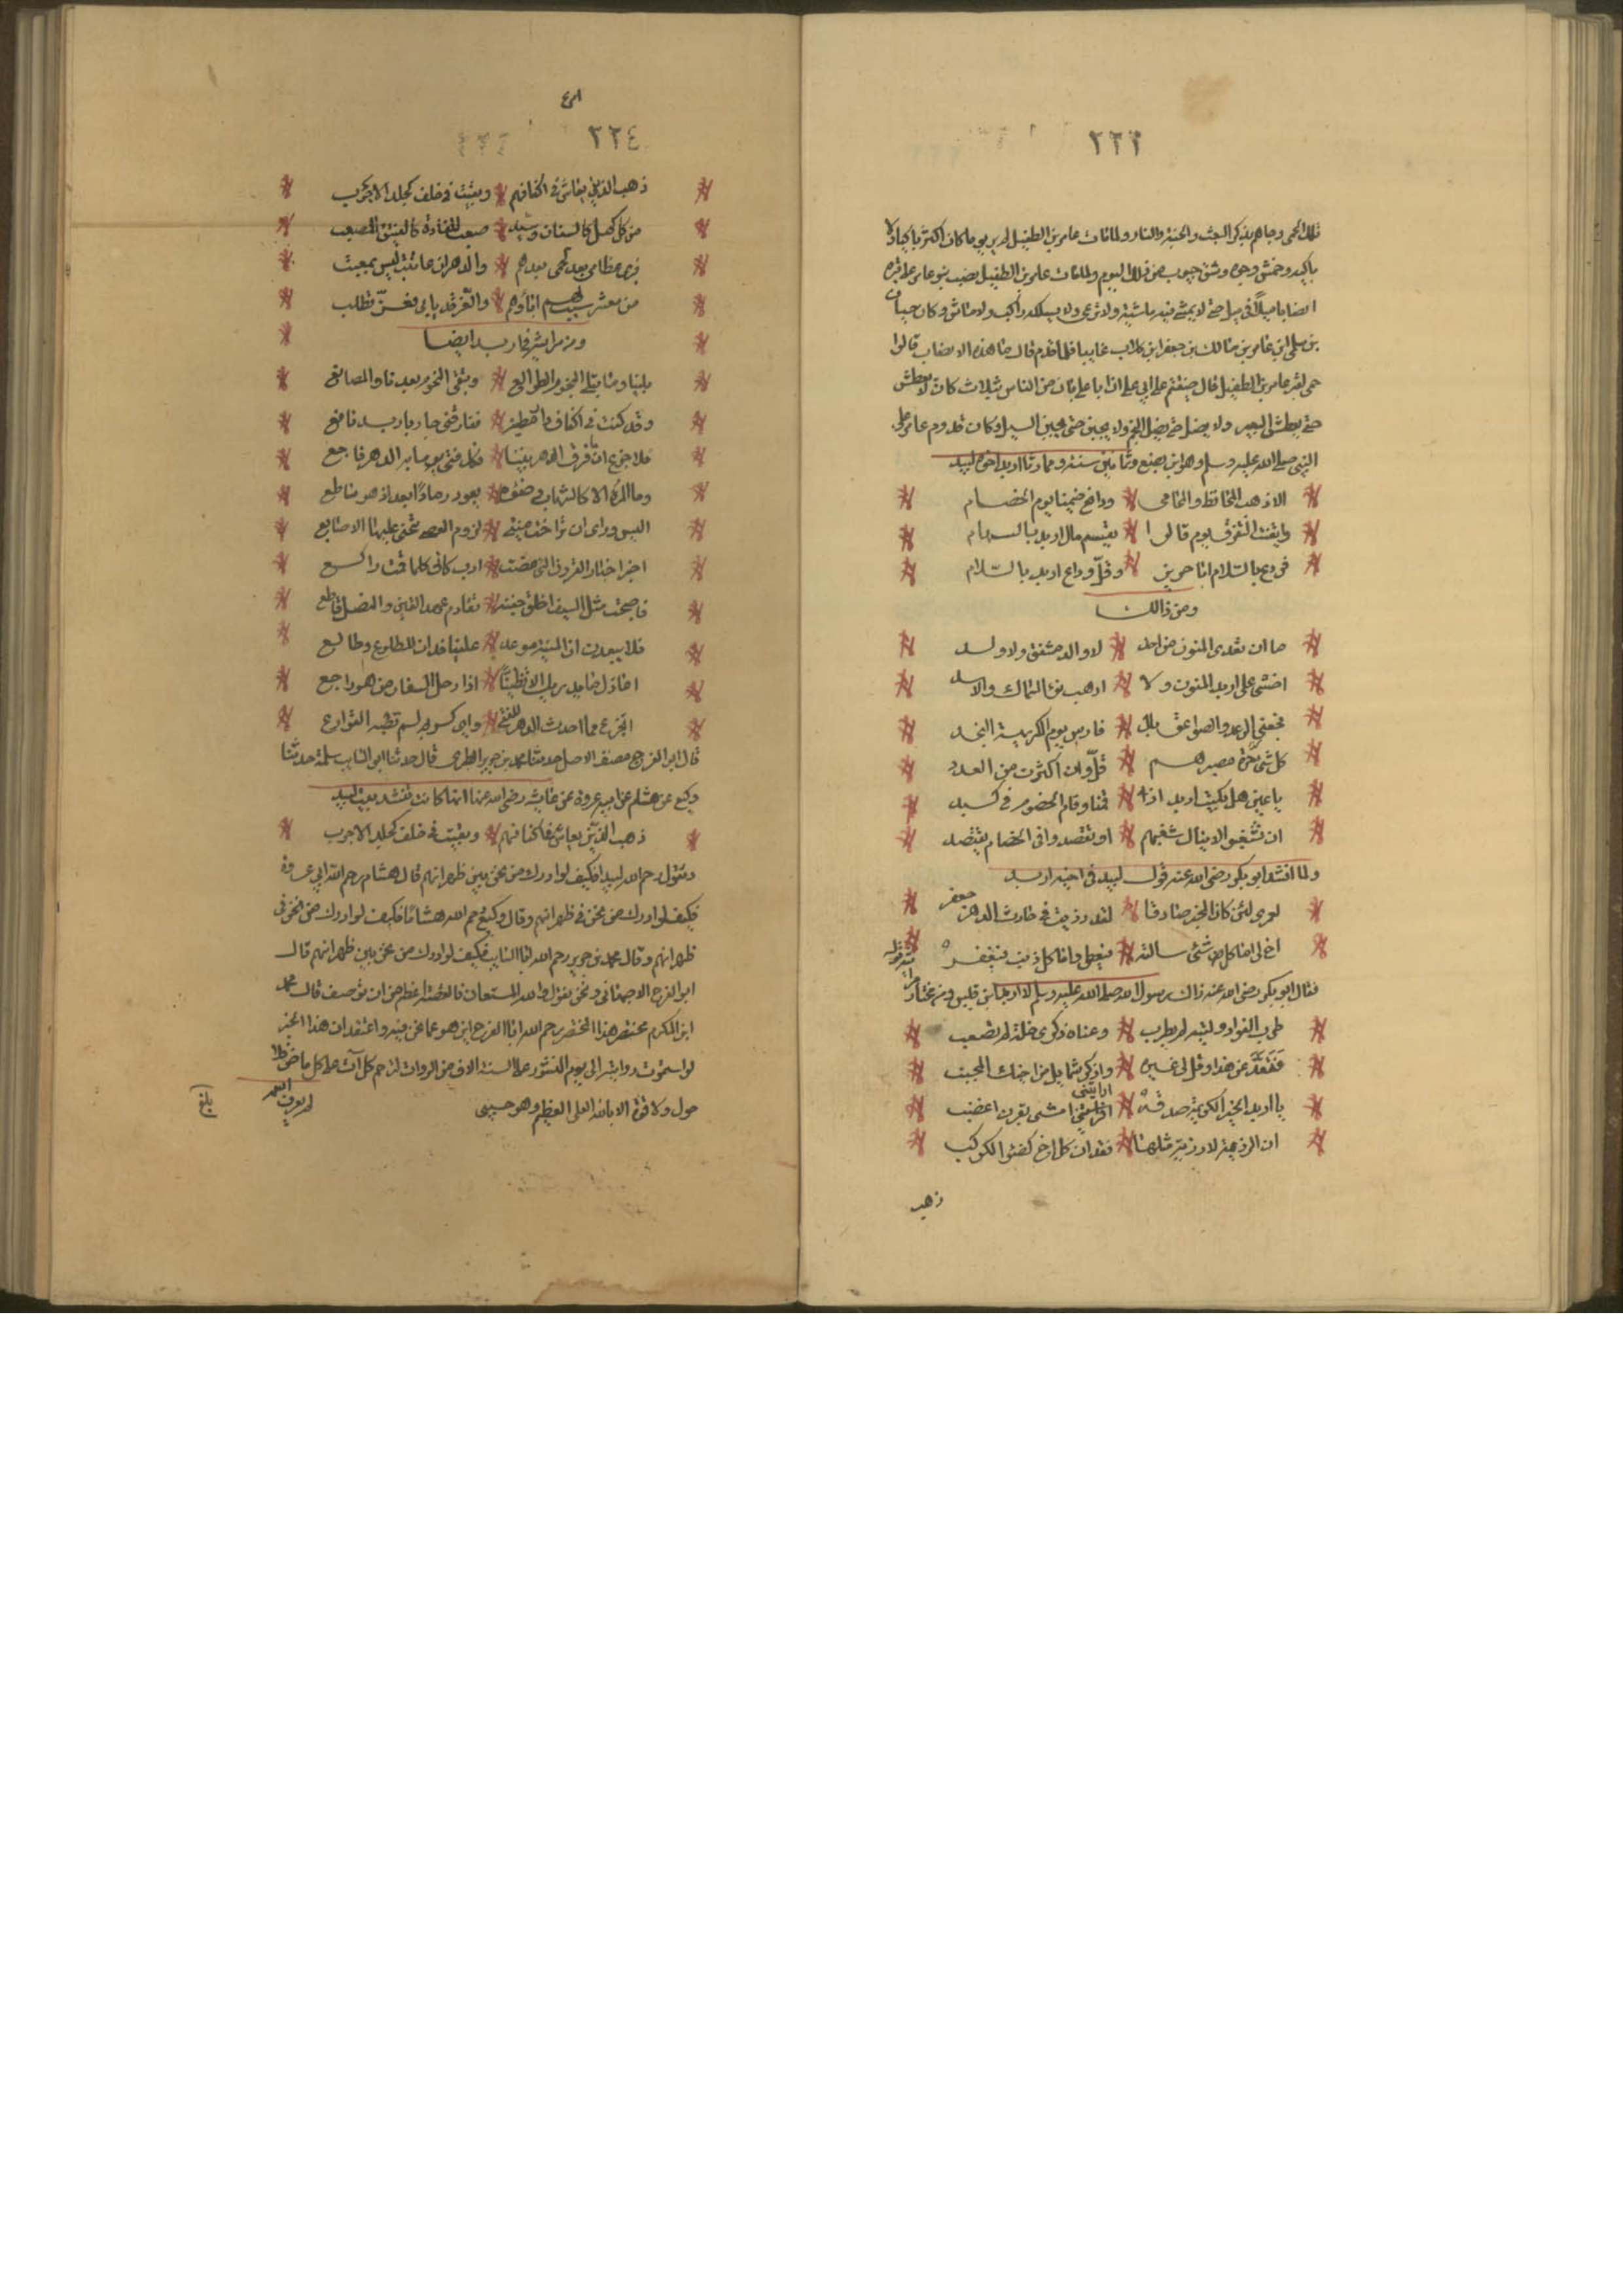 ٢٢٣
تلك الحمى وجاهم بذكر البعث والجنة والنار ولما مات عامر بن الطفيل لم ير يوما كان اكثر باكيا ولا
باكية وخمش وجوه وشق جيوب من ذلك اليوم ولما مات عامر بن الطفيل نصب بنو عامر على قبره
انصابا ميلا في ميل حتى لا يمشى فيه ماشية ولا ترعى ولا يسلكه راكب ولا ماش وكان جبار
بن سلمى ابن عامر بن مالك بن جعفر ابن كلاب غايبا فلما قدم قال ما هذه الانصاب قالوا
حمى لقبر عامر بن الطفيل قال ضيقتم على ابي علي ان ابا علي بان من الناس بثلاث كان لا يعطش
حتى يعطش البعير ولا يضل حتى يضل النجم ولا يجبن حتى يجبن السيل وكان قدوم عامر على
النبي صلى الله عليه وسلم وهو ابن بضع وثمانين سنة ومما رثا اربد اخوه لبيد
الا ذهب المحافظ والمحامي ودافع ضيمنا يوم الخصام
وايقنت التفرق يوم قالوا يقسم مال اربد بالسهام
فودع بالسلام ابا حريز وقل وداع اربد بالسلام
ومن ذالك
ما ان تعدى المنون من احد لا والد مشفق ولا ولد
اخشى على اربد المنون ولا ارهب نوء السماك والاسد
فجعني الرعد والصواعق بال فارس يوم الكريهة النجد
كل شئ حرة مصيرهم قل وان اكثرت من العدد
يا عين هل بكيت اربد اذ قمنا وقام الخصوم في كبد
ان تشغبوا لا يبال شغبهم او تقصدوا في الخصام يقتصد
ولما انشد ابو بكر رضى الله عنه قول لبيد في اخيه اربد
لعمرى لئن كان المخبر صادقا لقد رزيت في حادث الدهر جعفر
اخ لى اما كل شئ سالته فيعطى واما كل ذنب فيغفر
فقال ابو بكر رضى الله عنه ذاك رسول الله صلى الله عليه وسلم لا اربد ابن قيس ومن مختار
طرب الفواد وليته لم يطرب وعناه ذكرى خلة لم تصعب
فتعد عن هذا وقل في غيره واذكر شمايل من اخيك المحبب
يا اربد الخير الكريم صدقه افردتني امشى بقرن اعضب
ان الرزية لا رزية مثلها فقدان كل اخ كضوء الكوكب
ذهب
٢٢٤
ذهب الذين يعاش في اكنافهم وبقيت في خلف كجلد الاجرب
من كل كهل كالسنان وسيد صعب المقادة كالفنيق المصعب
من معشر سنت لهم اباؤهم والعز قد ياتي بغير تطلب
ومن مراثيه في اربد ايضا
بلينا وما تبلى النجوم الطوالع وتبقى النجوم بعدنا والمصانع
وقد كنت في اكناف دار مضنة ففارقني جار باربد نافع
فلا جزع ان فرق الدهر بيننا فكل فتى يوما به الدهر فاجع
وما المرء الا كالشهاب وضوئه يعود رمادا بعد اذ هو ساطع
اليس وراى ان تراخت منيتى لزوم العصى تحنى عليها الاصابع
اخبر اخبار القرون التى مضت ادب كانى كلما قمت راكع
فاصبحت مثل السيف اخلق جفنه تقادم عهد القين والنصل قاطع
فلا يبعدن ان المنية موعد علينا فدان للطلوع وطالع
اعاذل ما يدريك الا تظنيا اذا رحل السفار من هو راجع
اتجزع مما احدث الدهر للفتى واى كريم لم تصبه القوارع
قال ابو الفرج مصنف الاصل حدثنا محمد بن جرير الطبرى قال حدثنا ابو السايب سلمة حدثنا
وكيع عن هشام عن ابيه عروة عن عايشة رضى الله عنها انها كانت تنشد بيت لبيد
ذهب الذين يعاش في اكنافهم وبقيت في خلف كجلد الاجرب
وتقول رحم الله لبيدا فكيف لو ادرك من نحن بين ظهرانهم قال هشام رحم الله ابي عروة
فكيف لو ادرك من نحن في ظهرانهم وقال وكيع رحم الله هشاما فكيف لو ادرك من نحن في
ظهرانهم وقال محمد بن جرير رحم الله ابا السايب فكيف لو ادرك من نحن بين ظهرانهم قال
ابو الفرج الاصبهانى ونحن نقول والله المستعان فالقصة اعظم من ان توصف قال محمد
ابن المكرم مختصر هذا المختصر رحم الله ابا الفرج اين هو عما نحن فيه واعتقد ان هذا الخبر
لو استمرت روايته الى يوم النشور على السنة الاف من الروات لترحم كل آت على كل ماض ولا
حول ولا قوة الا بالله العلى العظيم وهو حسبى
بلغ